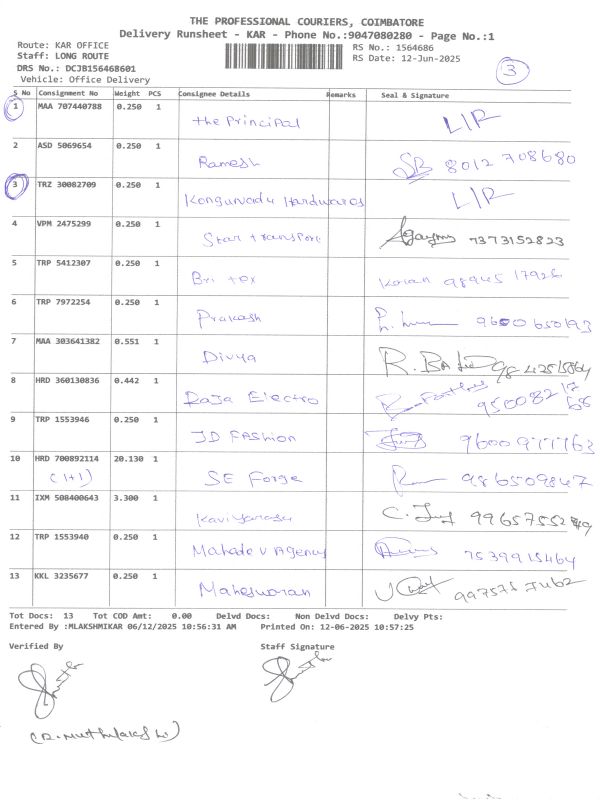 THE PROFESSIONAL COURIERS, COIMBATORE
Delivery Runsheet - KAR - Phone No.:9047080280 - Page No.:1
Route: KAR OFFICE RS No.: 1564686
Staff: LONG ROUTE RS Date: 12-Jun-2025
DRS No.: DCJB156468601 3
Vehicle: Office Delivery
S No Consignment No Weight PCS Consignee Details Remarks Seal & Signature
1 MAA 707440788 0.250 1
the Principal L/R
2 ASD 5069654 0.250 1
Ramesh SB 8012708680
3 TRZ 30082709 0.250 1
Kongunadu Hardwares L/R
4 VPM 2475299 0.250 1
Star transport 7373152823
5 TRP 5412307 0.250 1
Bri tex 98945 17926
6 TRP 7972254 0.250 1
Prakash 9600650193
7 MAA 303641382 0.551 1
Divya
8 HRD 360130836 0.442 1
Raja Electro
9 TRP 1553946 0.250 1
JD FAshion 9600977763
10 HRD 700892114 20.130 1
(1+1) SE Forge 986509847
11 IXM 508400643 3.300 1
Kaviyarasu 9965755249
12 TRP 1553940 0.250 1
Mahadev Agency 7539915464
13 KKL 3235677 0.250 1
Maheswaran
Tot Docs: 13 Tot COD Amt: 0.00 Delvd Docs: Non Delvd Docs: Delvy Pts:
Entered By :MLAKSHMIKAR 06/12/2025 10:56:31 AM Printed On: 12-06-2025 10:57:25
Verified By Staff Signature